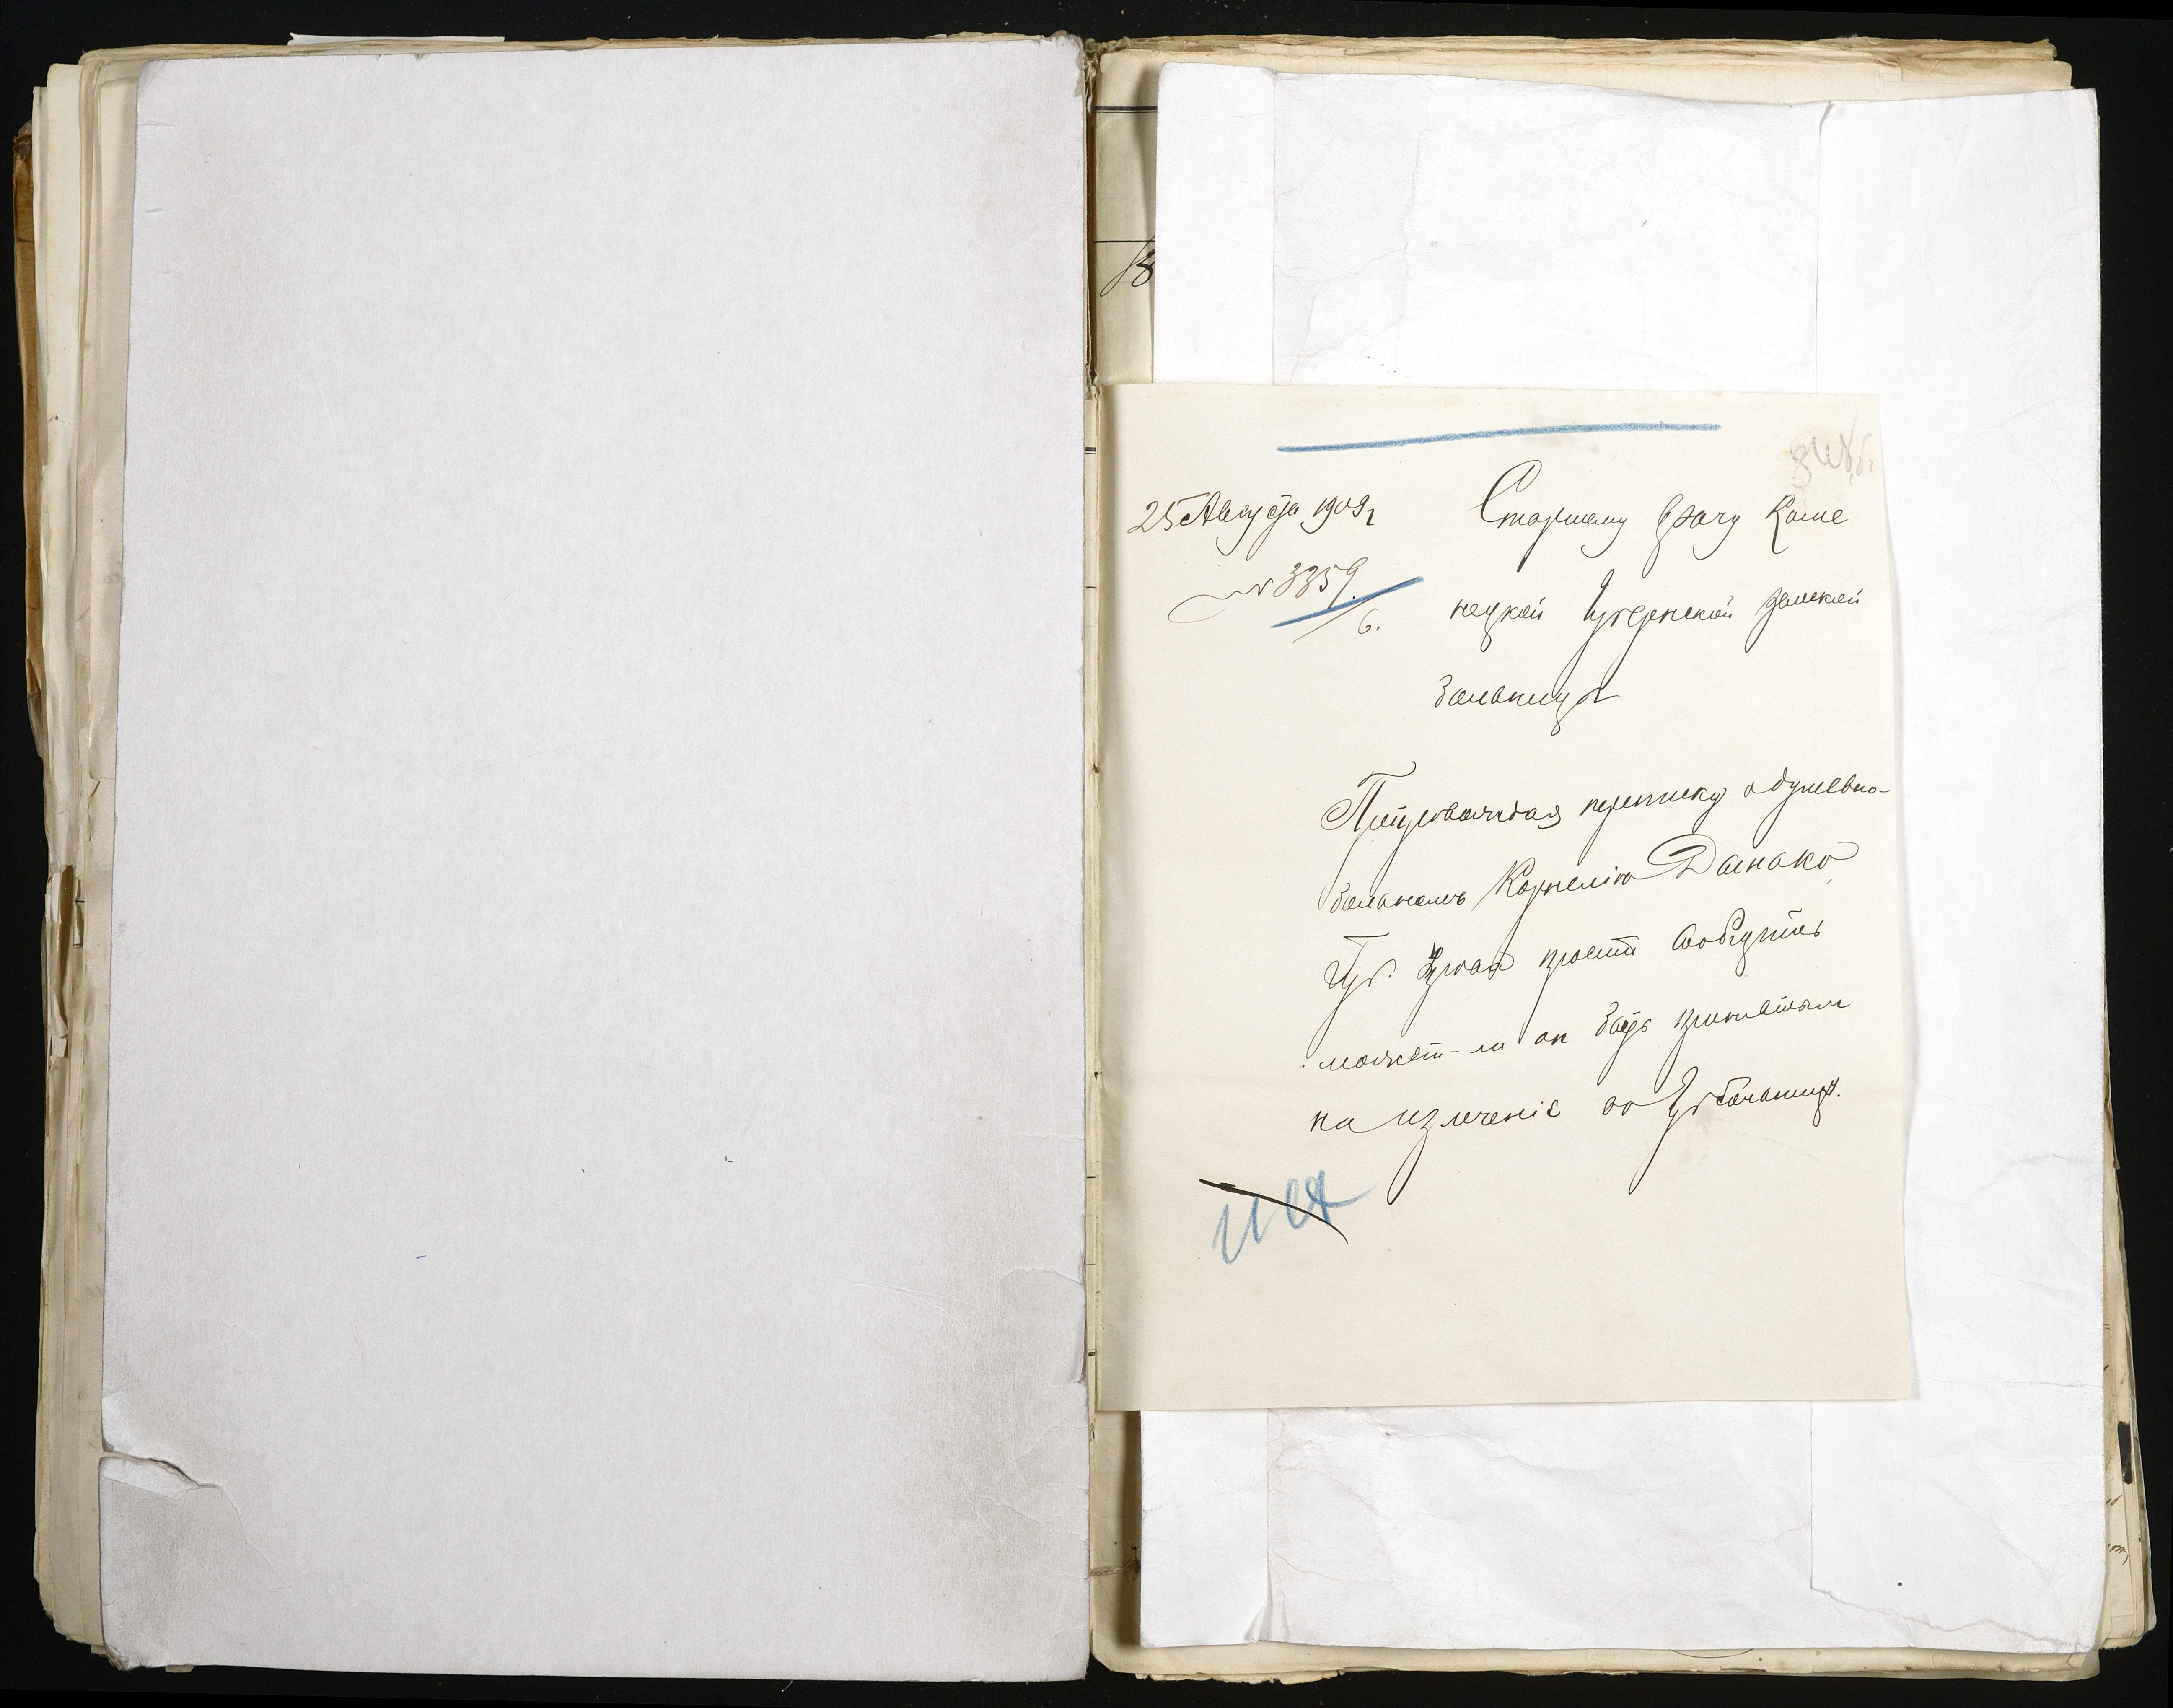 25 Августа 1909 г
№ 3359.
6.
Старшему врачу Каме
нецкой Губернской земской
больницы
Препровождая переписку о душевно-
больномъ Корнелію
Губ. Управа проситъ сообщить
можетъ-ли он быть принятым
на излеченіе во Губ больницу.